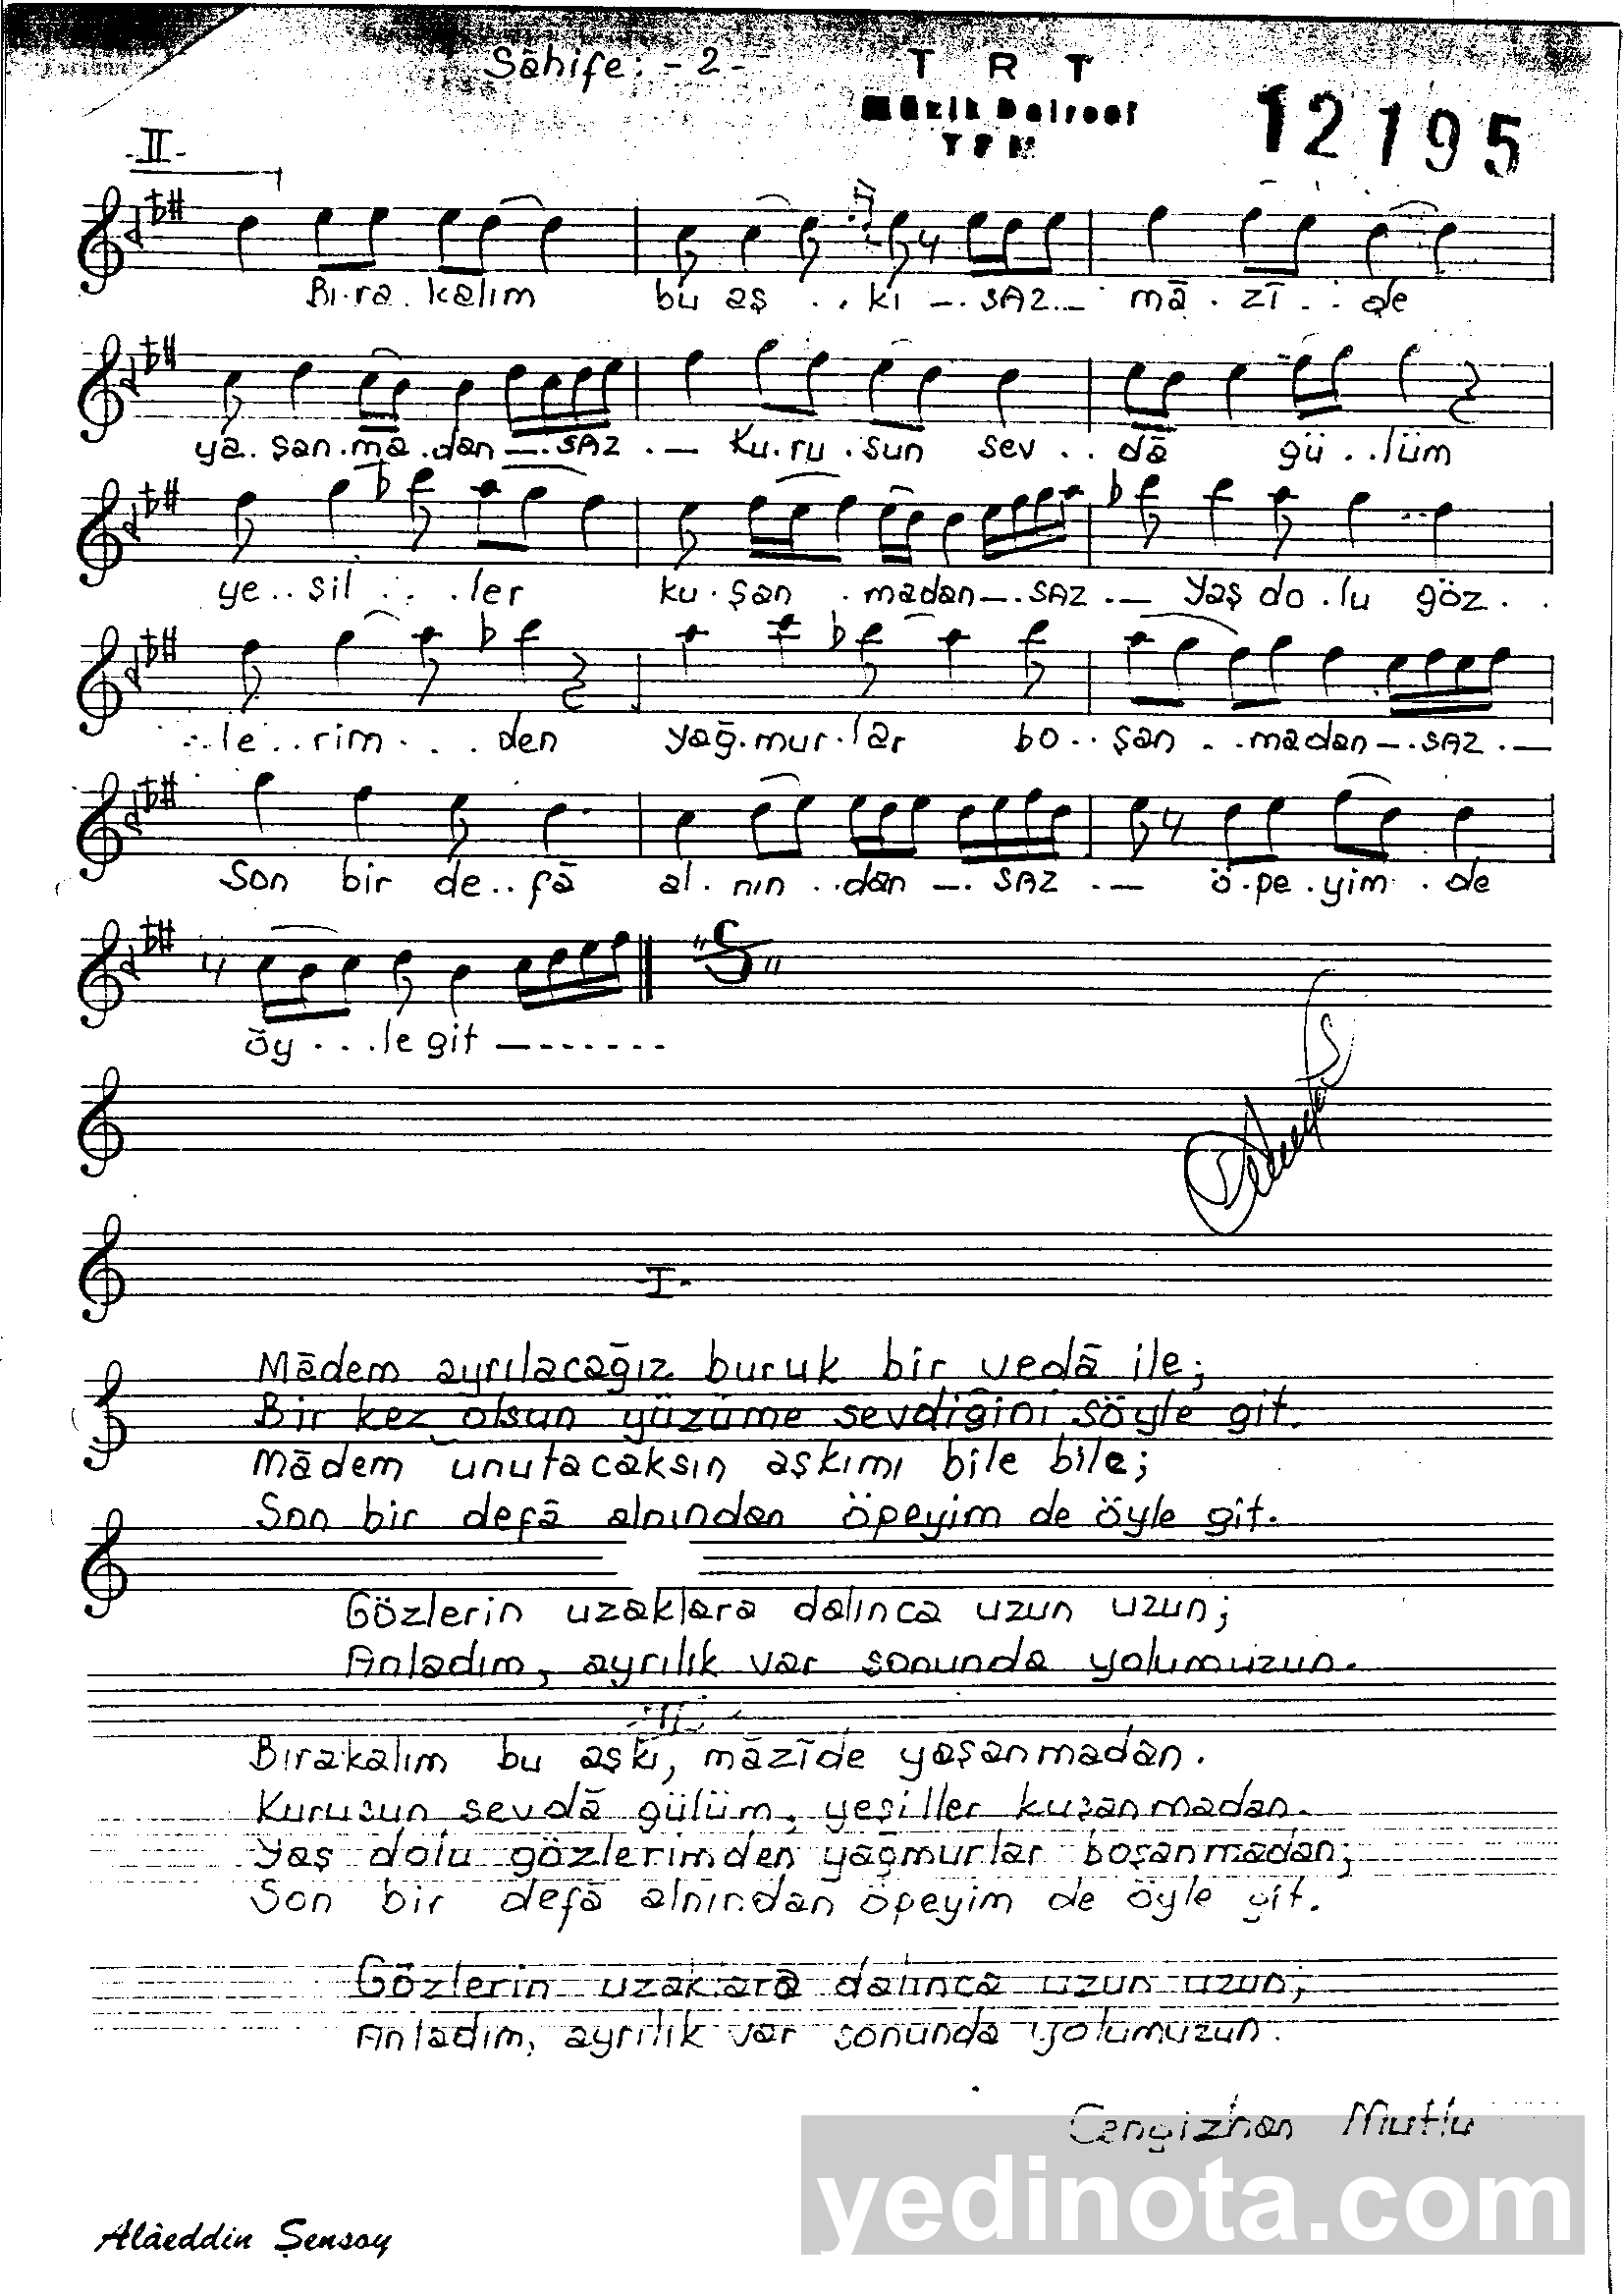 Sâhife: -2-
T R T
Müzik Dairesi
12195
-II-
Bı.ra.kalım bu aş..kı-.SAZ.- mā.zī..de
ya.şan.ma.dan-.SAZ.- Ku.ru.sun sev..dā gü..lüm
ye..şil...ler ku.şan.madan-.SAZ.- yaş do.lu göz..
..le..rim...den yağ.mur.lar bo..şan..madan-.SAZ.-
Son bir de..fā al.nın..dan-.SAZ.- ö.pe.yim.de
öy...le git-------
"S"
I-
Mādem ayrılacağız buruk bir vedā ile;
Bir kez olsun yüzüme sevdiğini söyle git.
Mādem unutacaksın aşkımı bile bile;
Son bir defā alnından öpeyim de öyle git.
Gözlerin uzaklara dalınca uzun uzun;
Anladım, ayrılık var sonunda yolumuzun.
-II-
Bırakalım bu aşkı, māzīde yaşanmadan.
Kurusun sevdā gülüm, yeşiller kuşanmadan.
Yaş dolu gözlerimden yağmurlar boşanmadan;
Son bir defā alnından öpeyim de öyle git.
Gözlerin uzaklara dalınca uzun uzun;
Anladım, ayrılık var sonunda yolumuzun.
Cengizhan Mutlu
yedinota.com
Alâeddin Şensoy